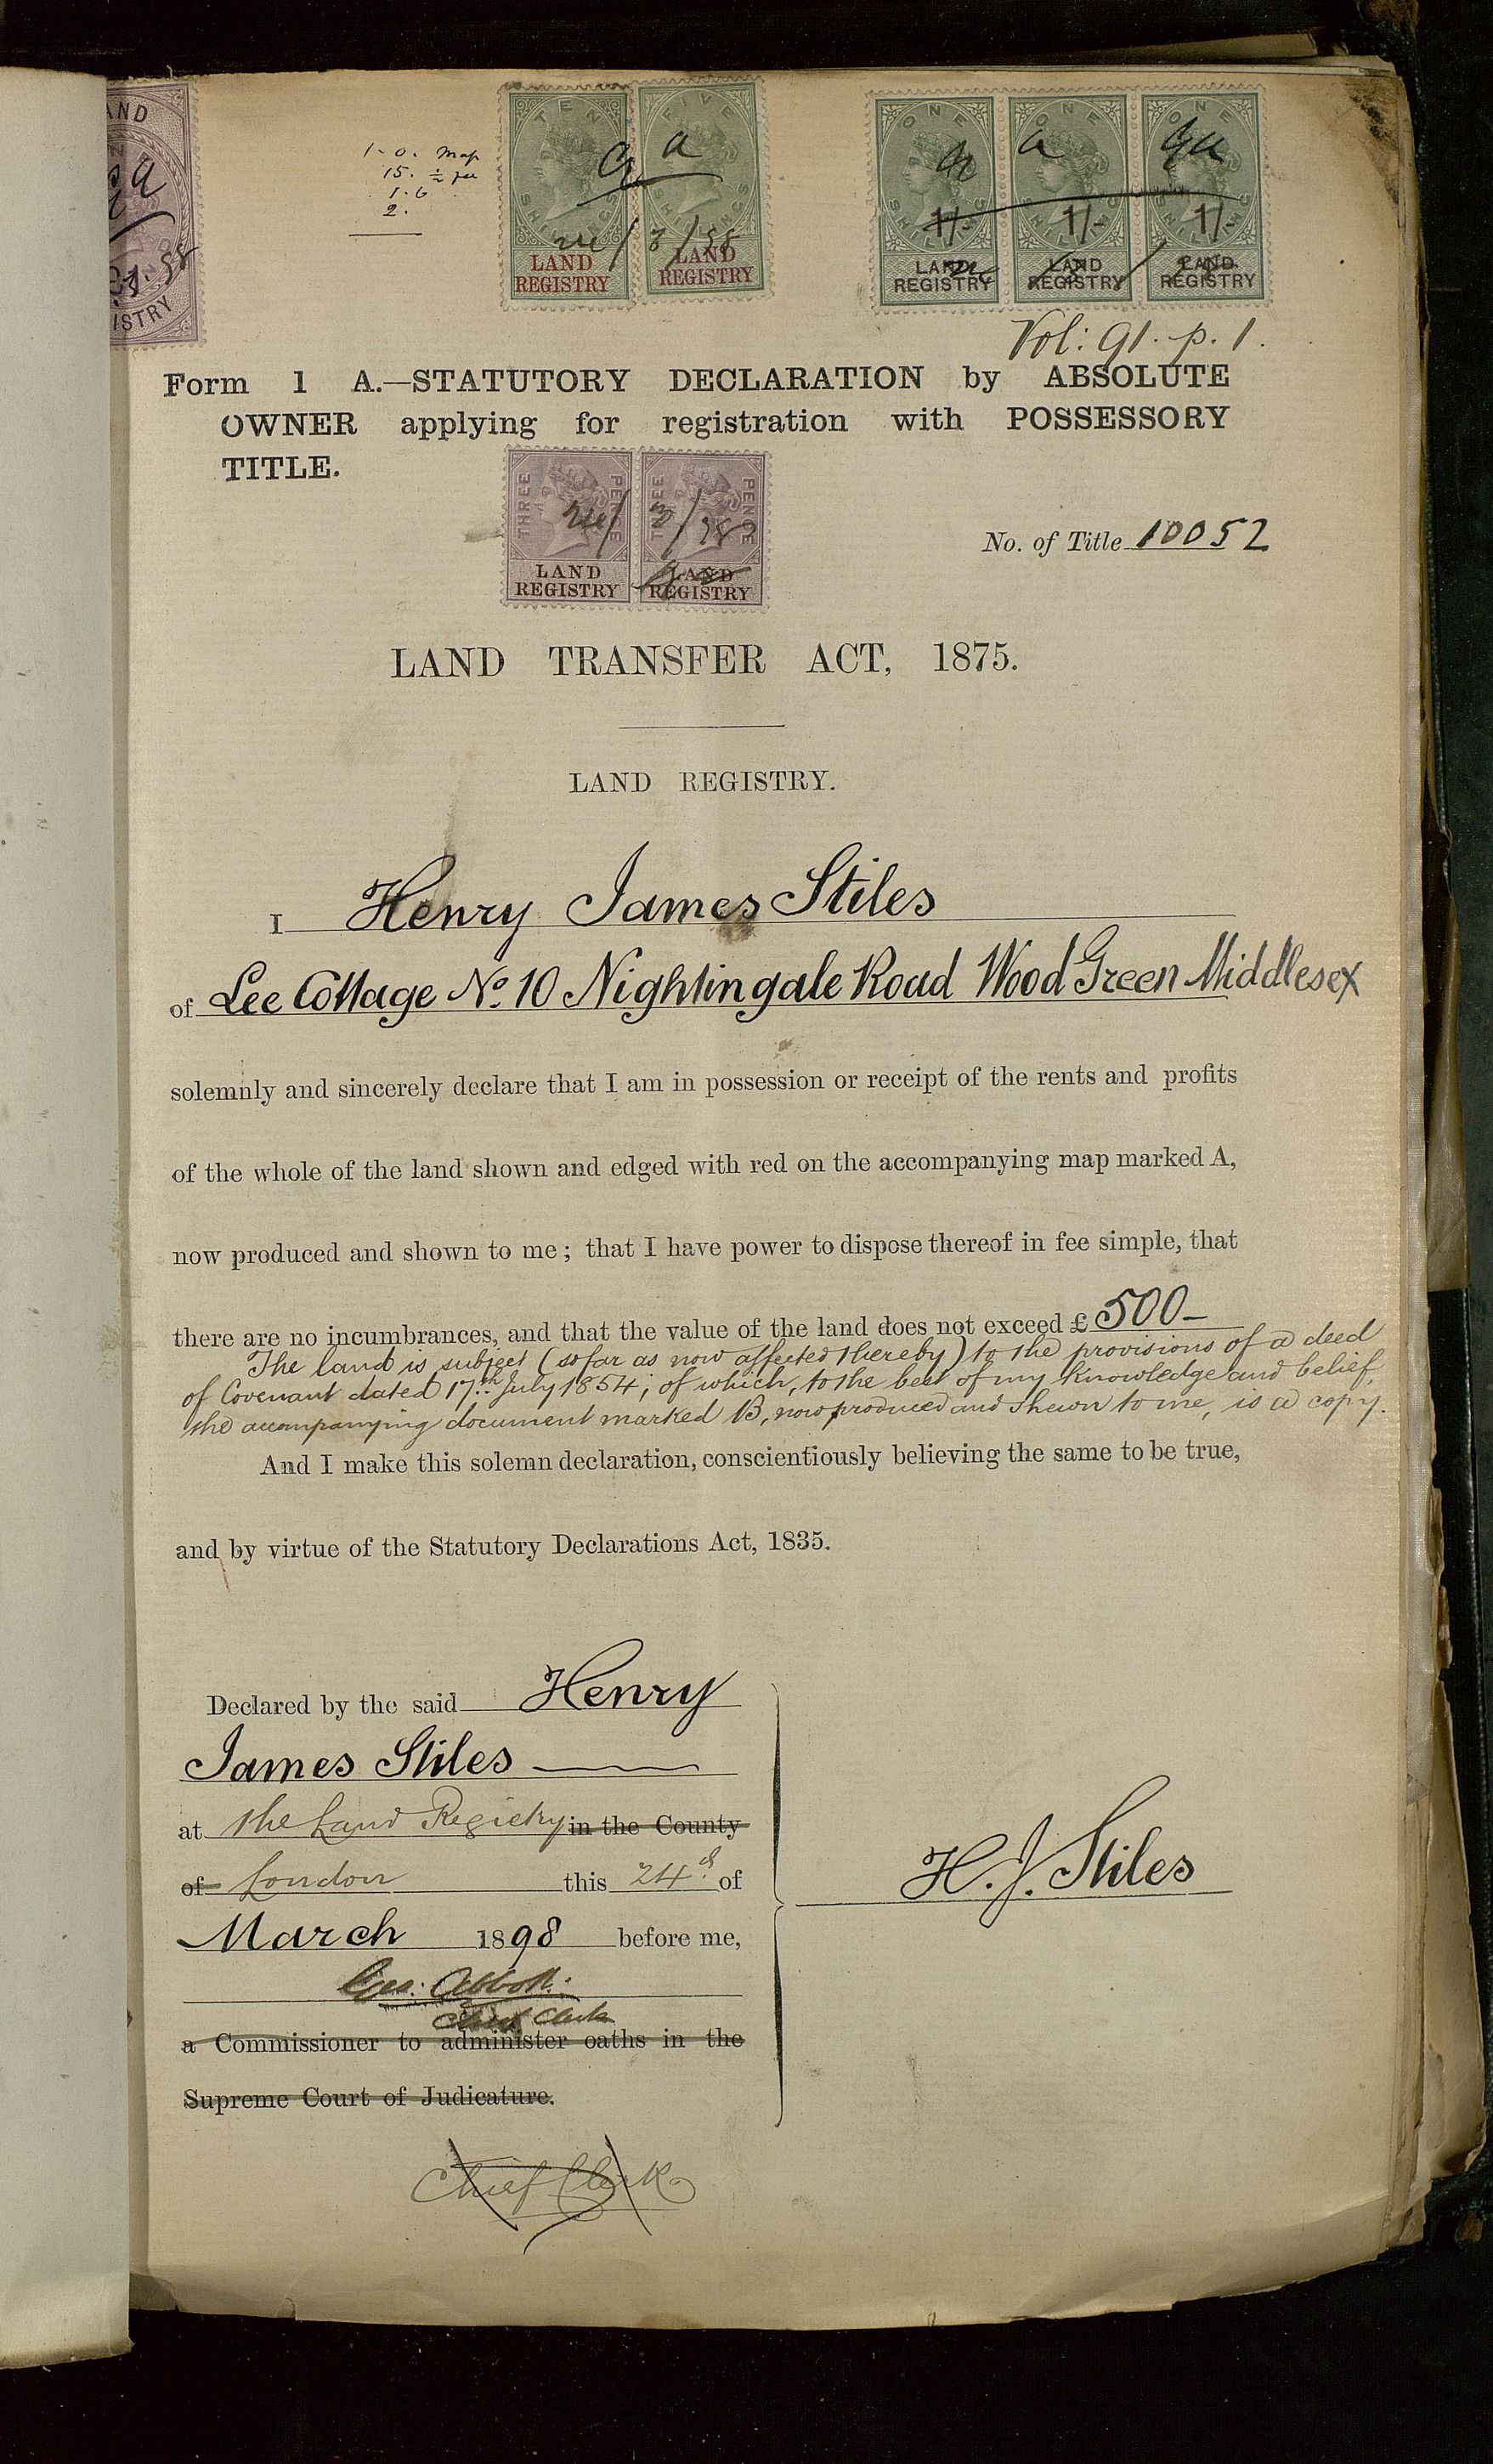 AND
ISTRY
1-0. map
15. ½ fee
1.6
2.
TEN SHILLINGS
LAND
REGISTRY
FIVE SHILLINGS
LAND
REGISTRY
24/3/98
ONE SHILLING
1/-
LAND
REGISTRY
ONE SHILLING
1/-
LAND
REGISTRY
ONE SHILLING
1/-
LAND
REGISTRY
Vol: 91. p. 1.
Form 1 A.—STATUTORY DECLARATION by ABSOLUTE
OWNER applying for registration with POSSESSORY
TITLE.
THREE PENCE
LAND
REGISTRY
THREE PENCE
LAND
REGISTRY
24/3/98
No. of Title 10052
LAND TRANSFER ACT, 1875.
LAND REGISTRY.
I Henry James Stiles
of Lee Cottage No. 10 Nightingale Road Wood Green Middlesex
solemnly and sincerely declare that I am in possession or receipt of the rents and profits
of the whole of the land shown and edged with red on the accompanying map marked A,
now produced and shown to me; that I have power to dispose thereof in fee simple, that
there are no incumbrances, and that the value of the land does not exceed £500-
The land is subject (so far as now affected thereby) to the provisions of a deed
of Covenant dated 17th July 1854; of which, to the best of my knowledge and belief,
the accompanying document marked B, now produced and shewn to me, is a copy.
And I make this solemn declaration, conscientiously believing the same to be true,
and by virtue of the Statutory Declarations Act, 1835.
Declared by the said Henry
James Stiles
at the Land Registry in the County
of London this 24th of
March 1898 before me,
Geo: Abbott
Chief Clerk
a Commissioner to administer oaths in the
Supreme Court of Judicature.
H. J. Stiles
Chief Clerk